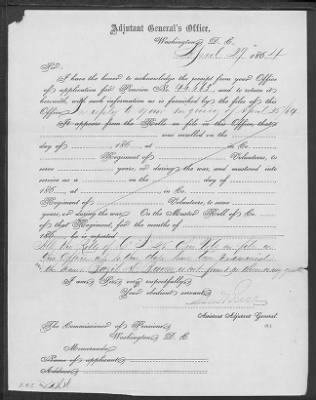 Adjutant General's Office,
Washington, D. C.
April 29, 1864
Sir:
I have the honor to acknowledge the receipt from your Office
of application for Pension No. 46,665, and to return it
herewith, with such information as is furnished by the files of this
Office
It appears from the Rolls on file in this Office, that
day of 186 , at in Co.
Regiment of Volunteers, to
serve years, or during the war, and mustered into
service as a on the day of
186 , at in Co.
Regiment of Volunteers, to serve
years, or during the war. On the Muster Roll of Co.
of that Regiment, for the months of
186 , he is reported
All the Rolls of Co. on file in
this Office up to date have been examined
the name
I am, Sir, very respectfully,
Your obedient servant,
Assistant Adjutant General.
The Commissioner of Pensions,
Washington, D. C.
Memoranda:
Name of applicant
Address